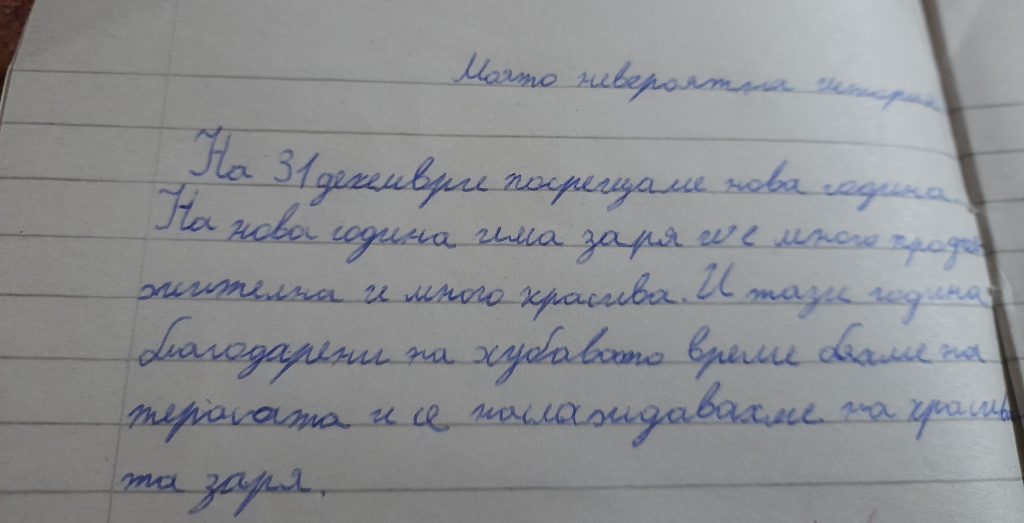 Моята невероятна история
На 31 декември посрещаме нова година.
На нова година има заря и е много продъл-
жителна и много красива. И тази година
благодарени на хубавото време бяхме на
терасата и се наслаждавахме на красива
та заря.